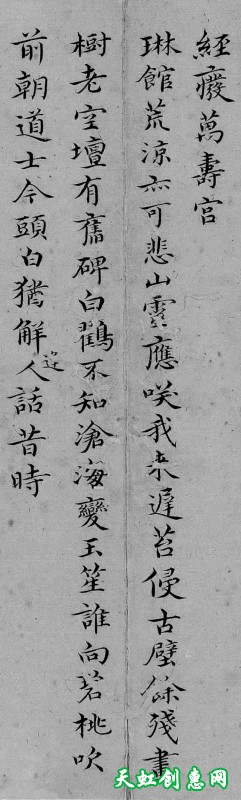 經癈萬壽宮
琳館荒涼亦可悲山靈應咲我来遲苔侵古壁餘殘畫
樹老空壇有舊碑白鸛不知滄海變玉笙誰向碧桃吹
前朝道士今頭白猶解人逢話昔時
天虹创惠网